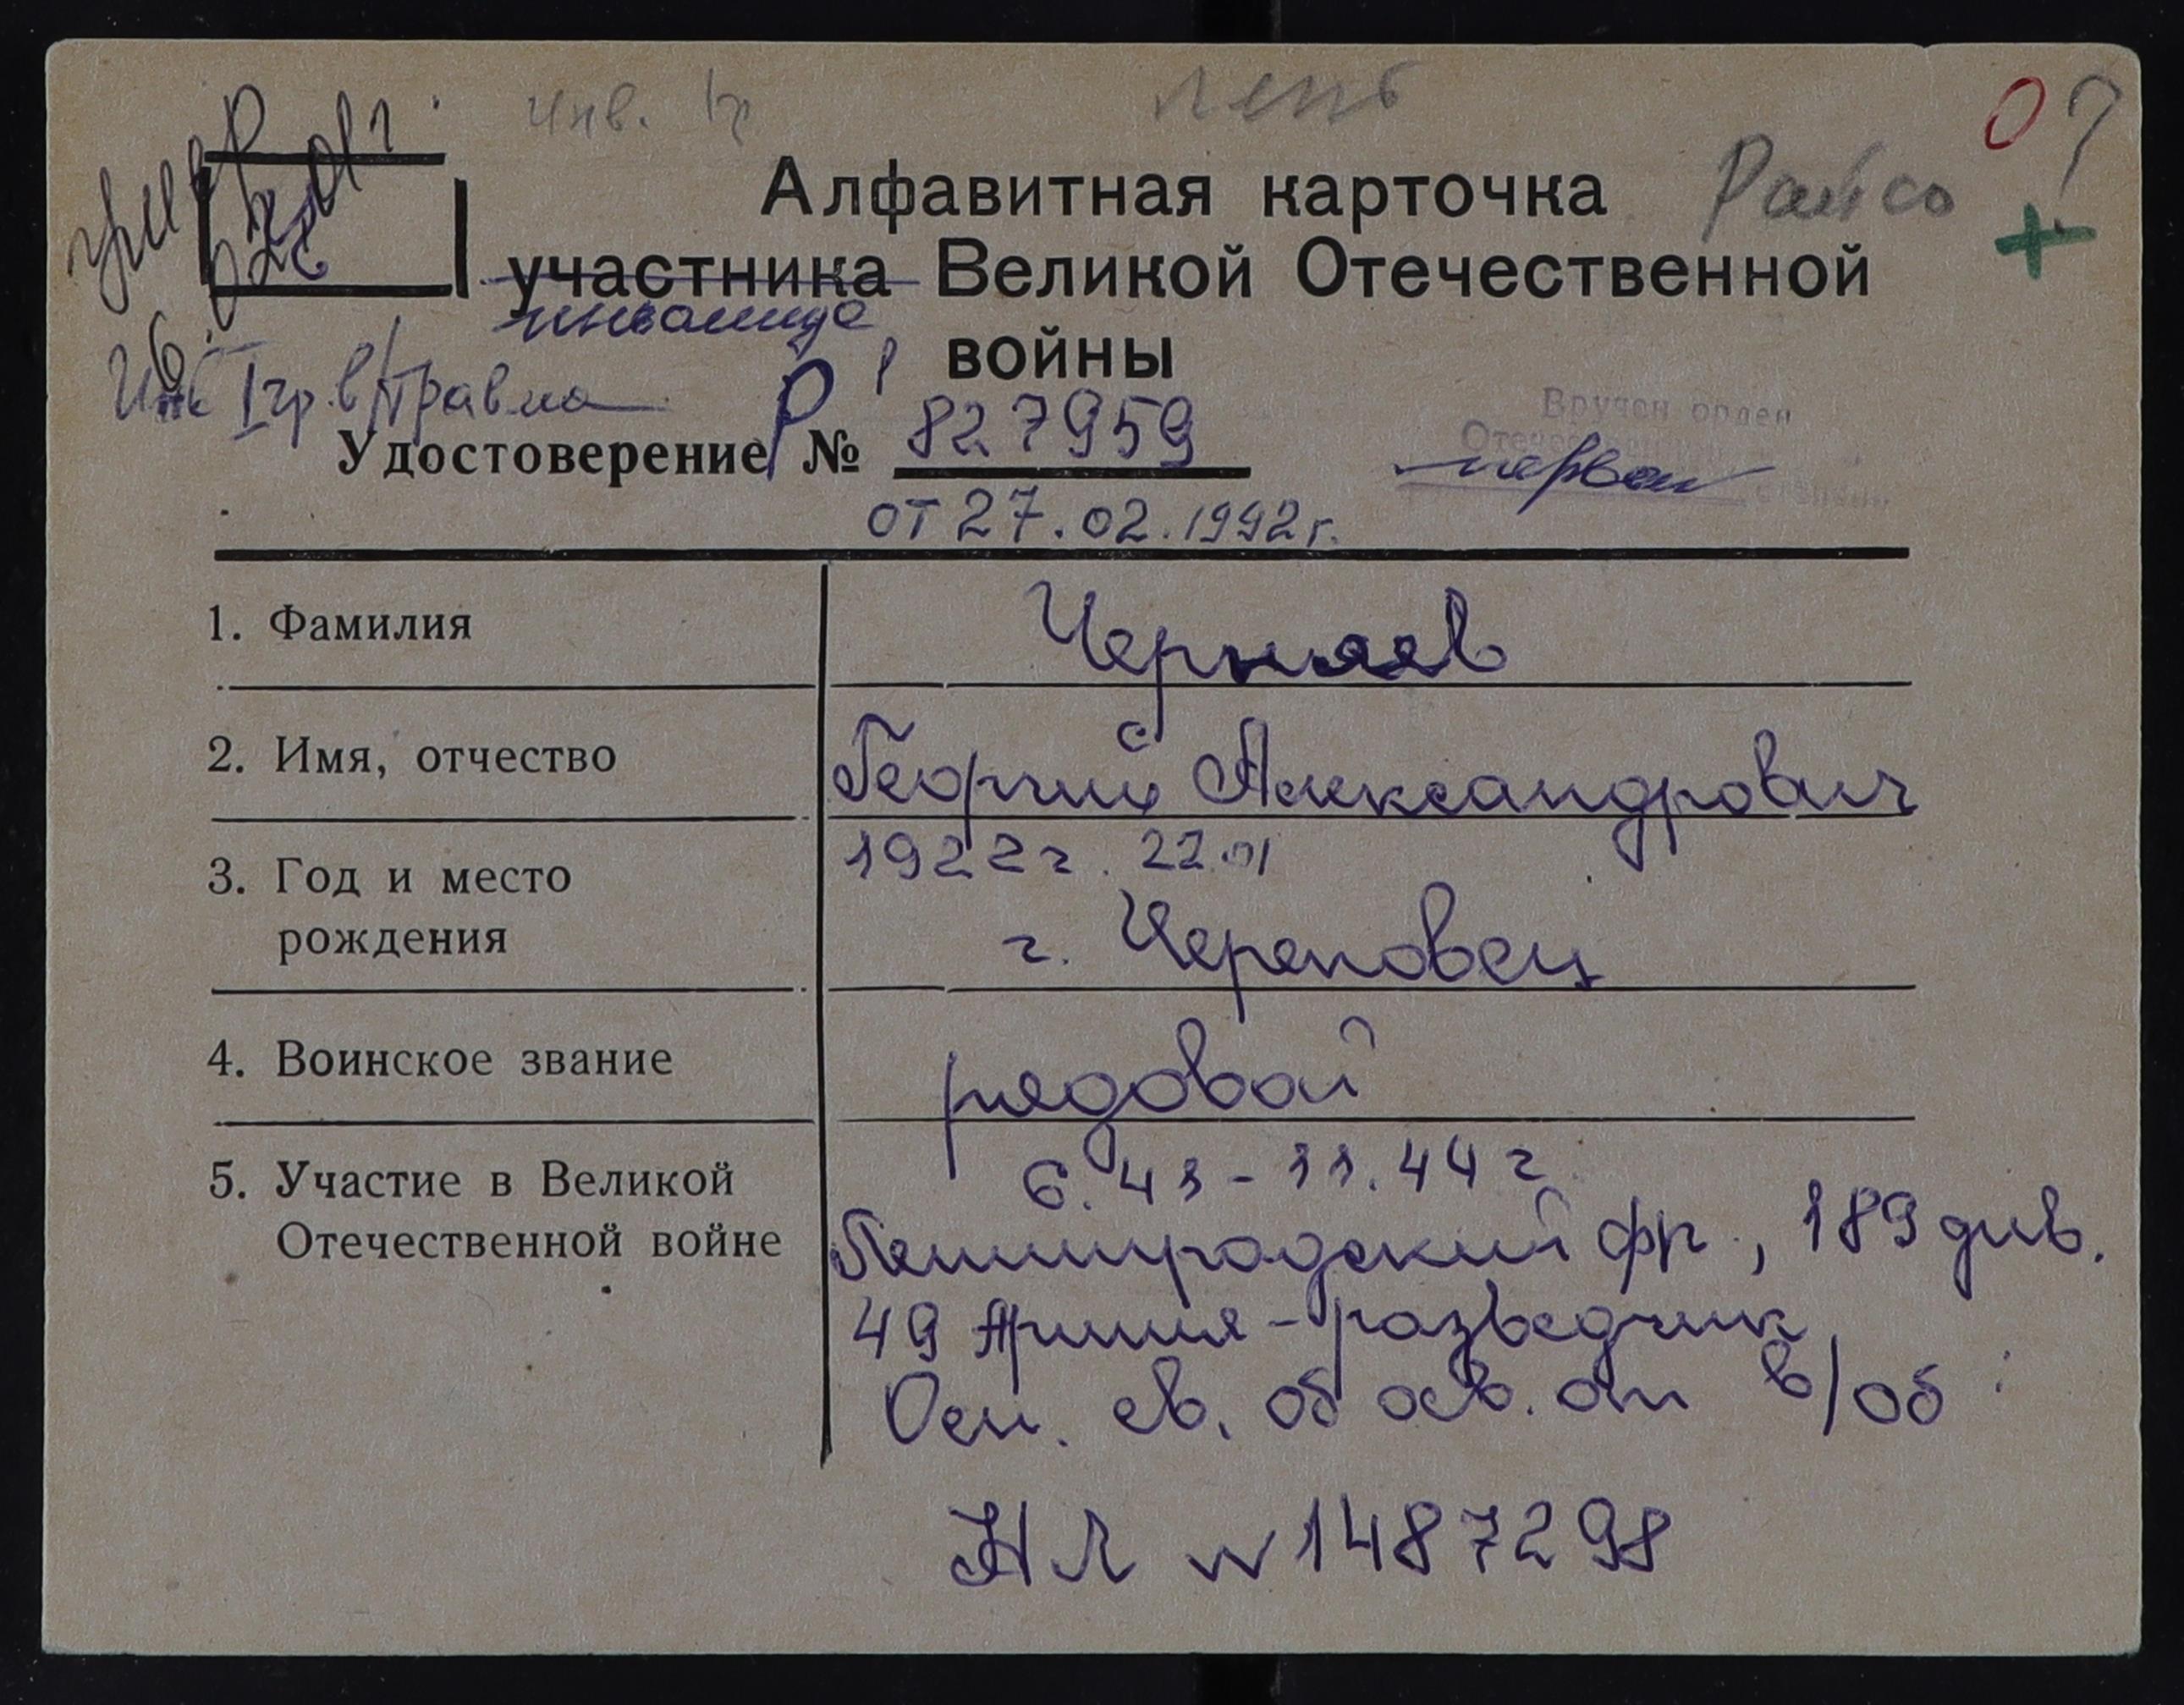 инв.
Райсо
умер
Алфавитная карточка
участника Великой Отечественной
инвалида
войны
Инв I гр. в/травма
Вручен орден
первой степени
Удостоверение Р № 827959
от 27.02.1992г.
1. Фамилия Черняев
2. Имя, отчество Георгий Александрович
3. Год и место 1922г. 22.01
рождения г. Череповец
4. Воинское звание рядовой
5. Участие в Великой 6.41-11.44г
Отечественной войне Ленинградский фр., 189 див.
49 Армия - разведчик
Осн. св. об осв. от в/об
НЛ № 1487298